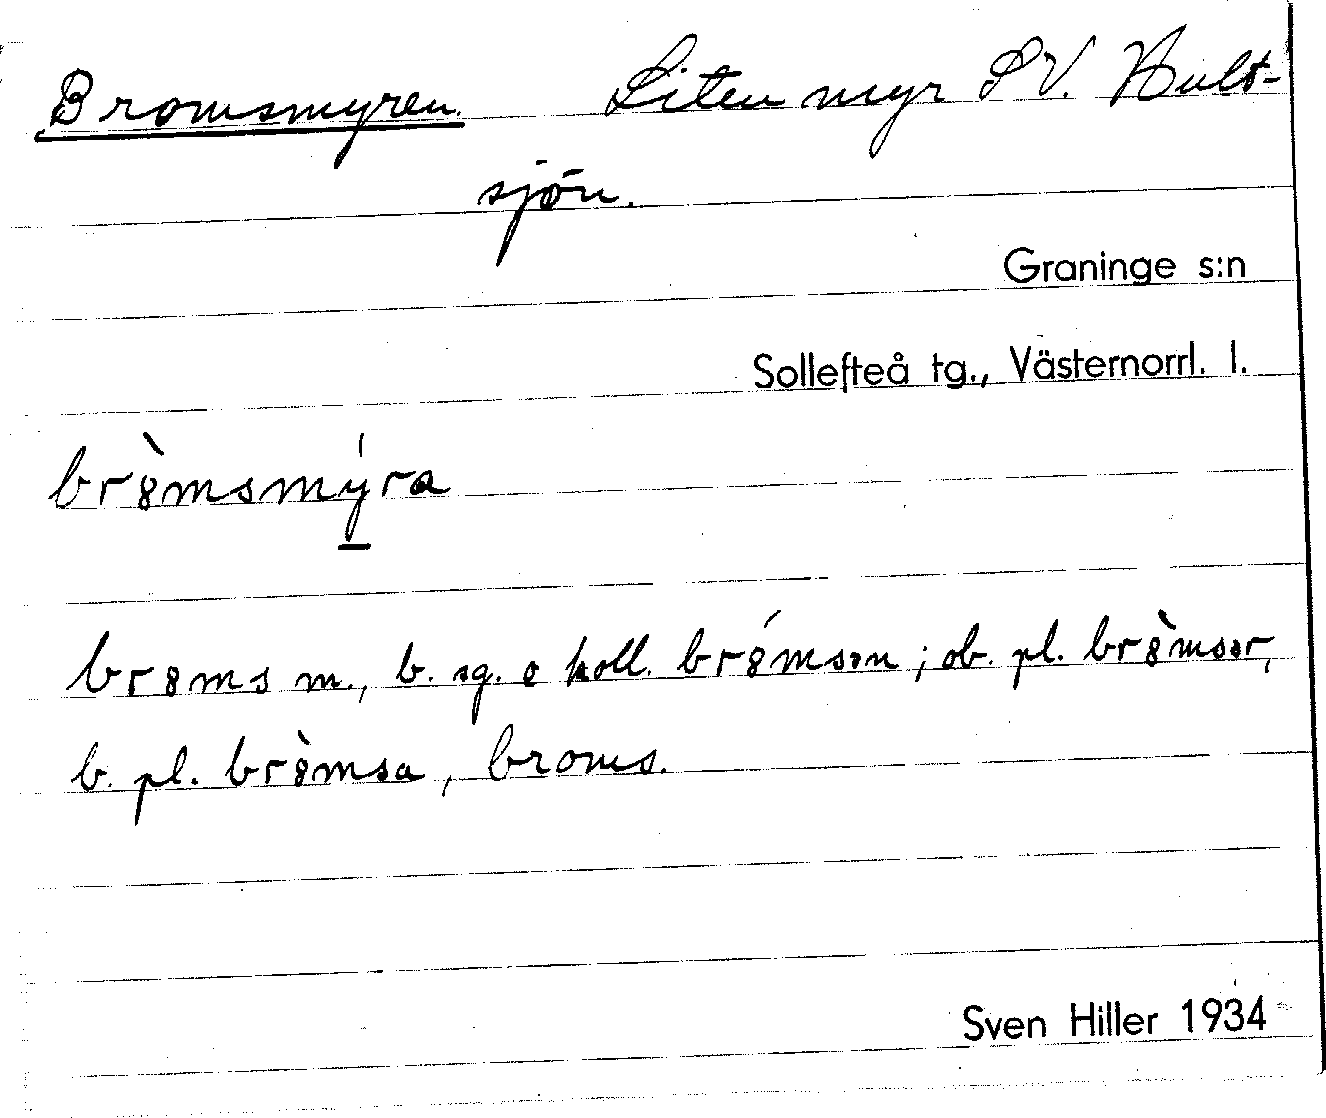 Bromsmyren. Liten myr SV. Hult-
sjön.
Graninge s:n
Sollefteå tg., Västernorrl. l.
br8̀msmýra
br8ms m., b. sg. o koll. br8́msən ; ob. pl. br8̀msər,
b. pl. br8̀msa, broms.
Sven Hiller 1934